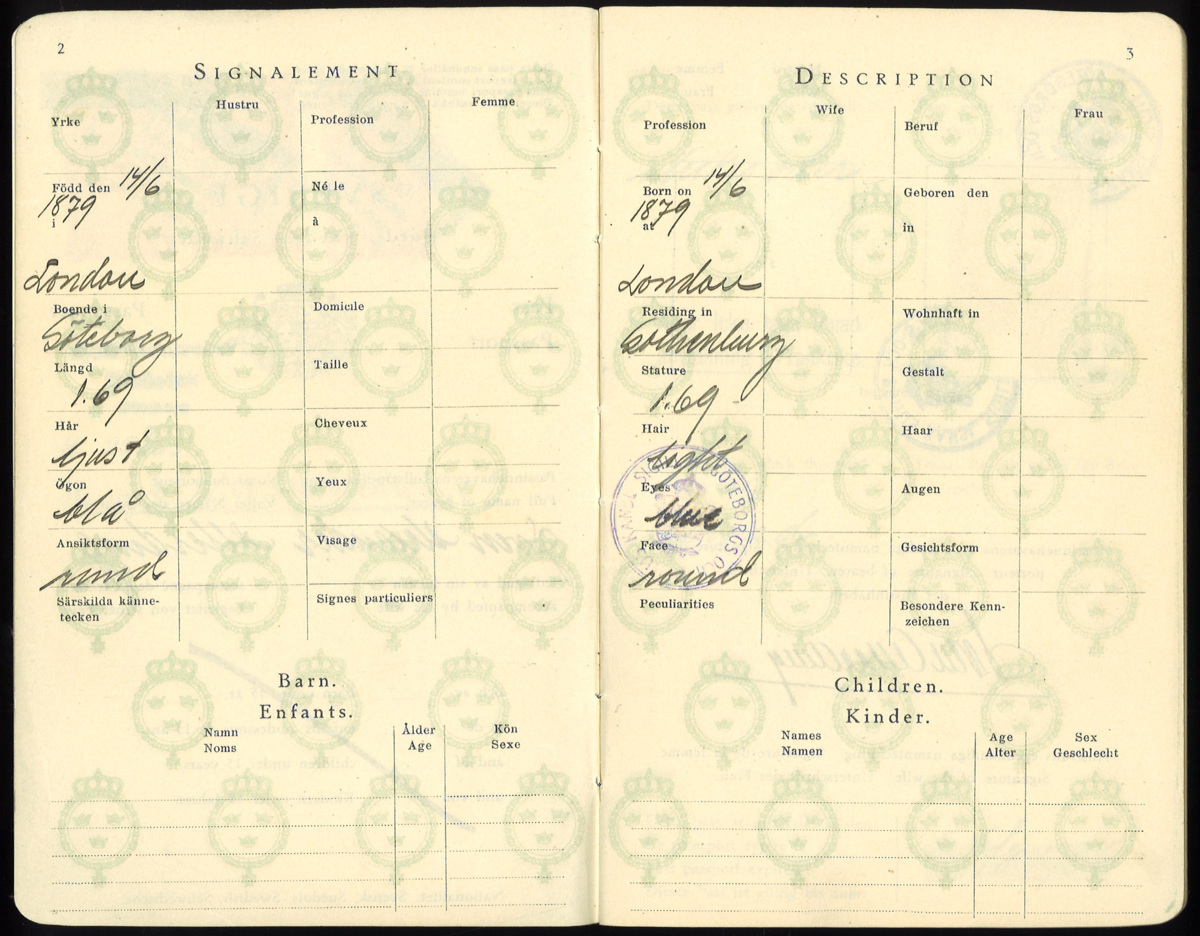 2
SIGNALEMENT
Hustru
Femme
Yrke
Profession
Född den 14/6
1879
i
London
Né le
à
Boende i
Göteborg
Domicile
Längd
1.69
Taille
Hår
ljust
Cheveux
Ögon
blå
Yeux
Ansiktsform
rund
Visage
Särskilda känne-
tecken
Signes particuliers
Barn.
Enfants.
Namn
Noms
Ålder
Age
Kön
Sexe
3
DESCRIPTION
Wife
Frau
Profession
Beruf
Born on 14/6
1879
at
London
Geboren den
in
Residing in
Gothenburg
Wohnhaft in
Stature
1.69
Gestalt
Hair
light
Haar
Eyes
blue
Augen
Face
round
Gesichtsform
Peculiarities
Besondere Kenn-
zeichen
GÖTEBORGS OCH
Children.
Kinder.
Names
Namen
Age
Alter
Sex
Geschlecht